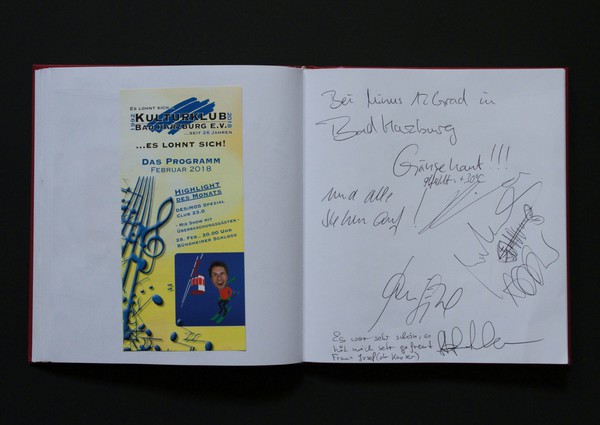 Es lohnt sich...
Kulturklub
Bad Harzburg e.V.
1992
2018
...seit 26 Jahren
...es lohnt sich!
Das Programm
Februar 2018
Highlight
des Monats
Desimos Spezial
Club 23.0
- Mix Show mit
Überraschungsgästen -
28. Feb., 20.00 Uhr
Bündheimer Schloss
Bei Minus 12 Grad in
Bad Harzburg
Gänsehaut!!!
gefühlt: +30°C
und alle
stehen auf
Es war sehr schön, es
hat mich sehr gefreut
Franz Josef (der Kaiser)